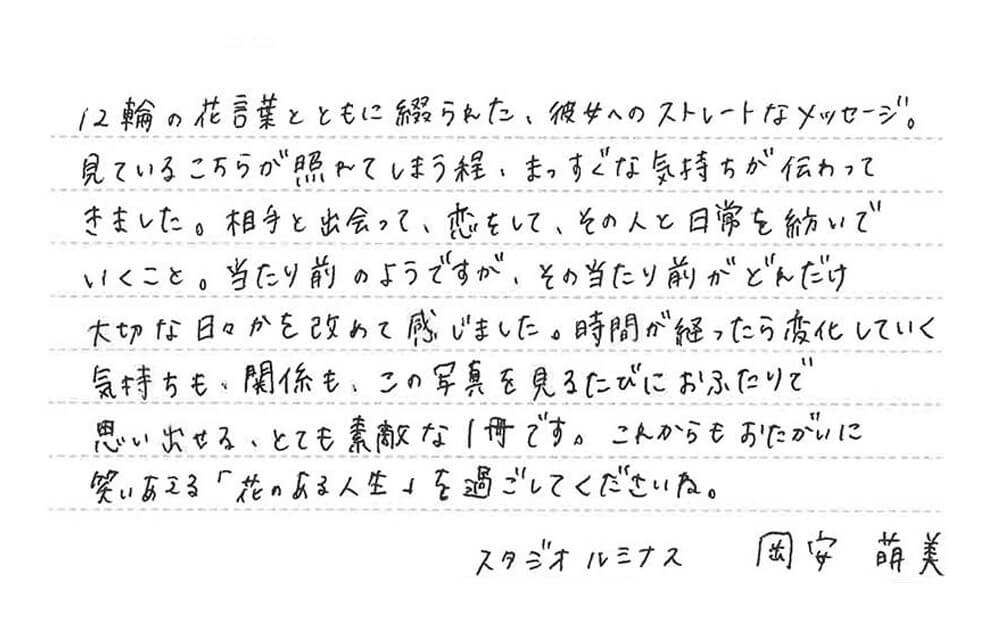 12輪の花言葉とともに綴られた、彼女へのストレートなメッセージ。
見ているこちらが照れてしまう程、まっすぐな気持ちが伝わって
きました。相手と出会って、恋をして、その人と日常を紡いで
いくこと。当たり前のようですが、その当たり前がどんだけ
大切な日々かを改めて感じました。時間が経ったら変化していく
気持ちも、関係も、この写真を見るたびにおふたりで
思い出せる、とても素敵な1冊です。これからもおたがいに
笑いあえる「花のある人生」を過ごしてくださいね。
スタジオルミナス 岡安 萌美